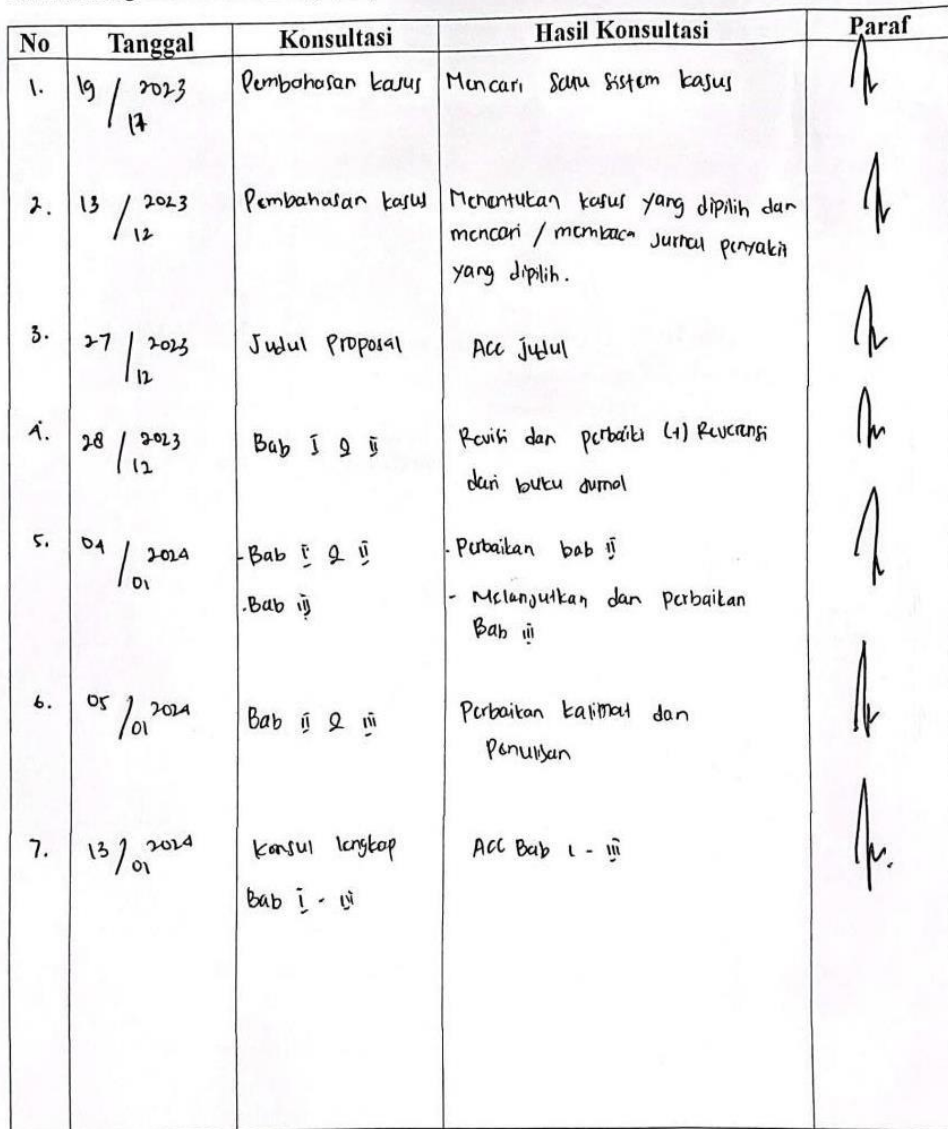 No Tanggal Konsultasi Hasil Konsultasi Paraf
1. 19 / 2023 Pembahasan kasus Mencari satu sistem kasus
17
2. 13 / 2023 Pembahasan kasus Menentukan kasus yang dipilih dan
12 mencari / membaca Jurnal penyakit
yang dipilih.
3. 27 / 2023 Judul Proposal Acc judul
12
4. 28 / 2023 Bab I & II Revisi dan perbaiki (+) Reverensi
12 dari buku Jurnal
5. 04 / 2024 - Bab I & II - Perbaikan bab II
01 - Bab III - Melanjutkan dan Perbaikan
Bab III
6. 05 / 2024 Bab II & III Perbaikan kalimat dan
01 Penulisan
7. 13 / 2024 Konsul lengkap ACC Bab I - III
01 Bab I - III